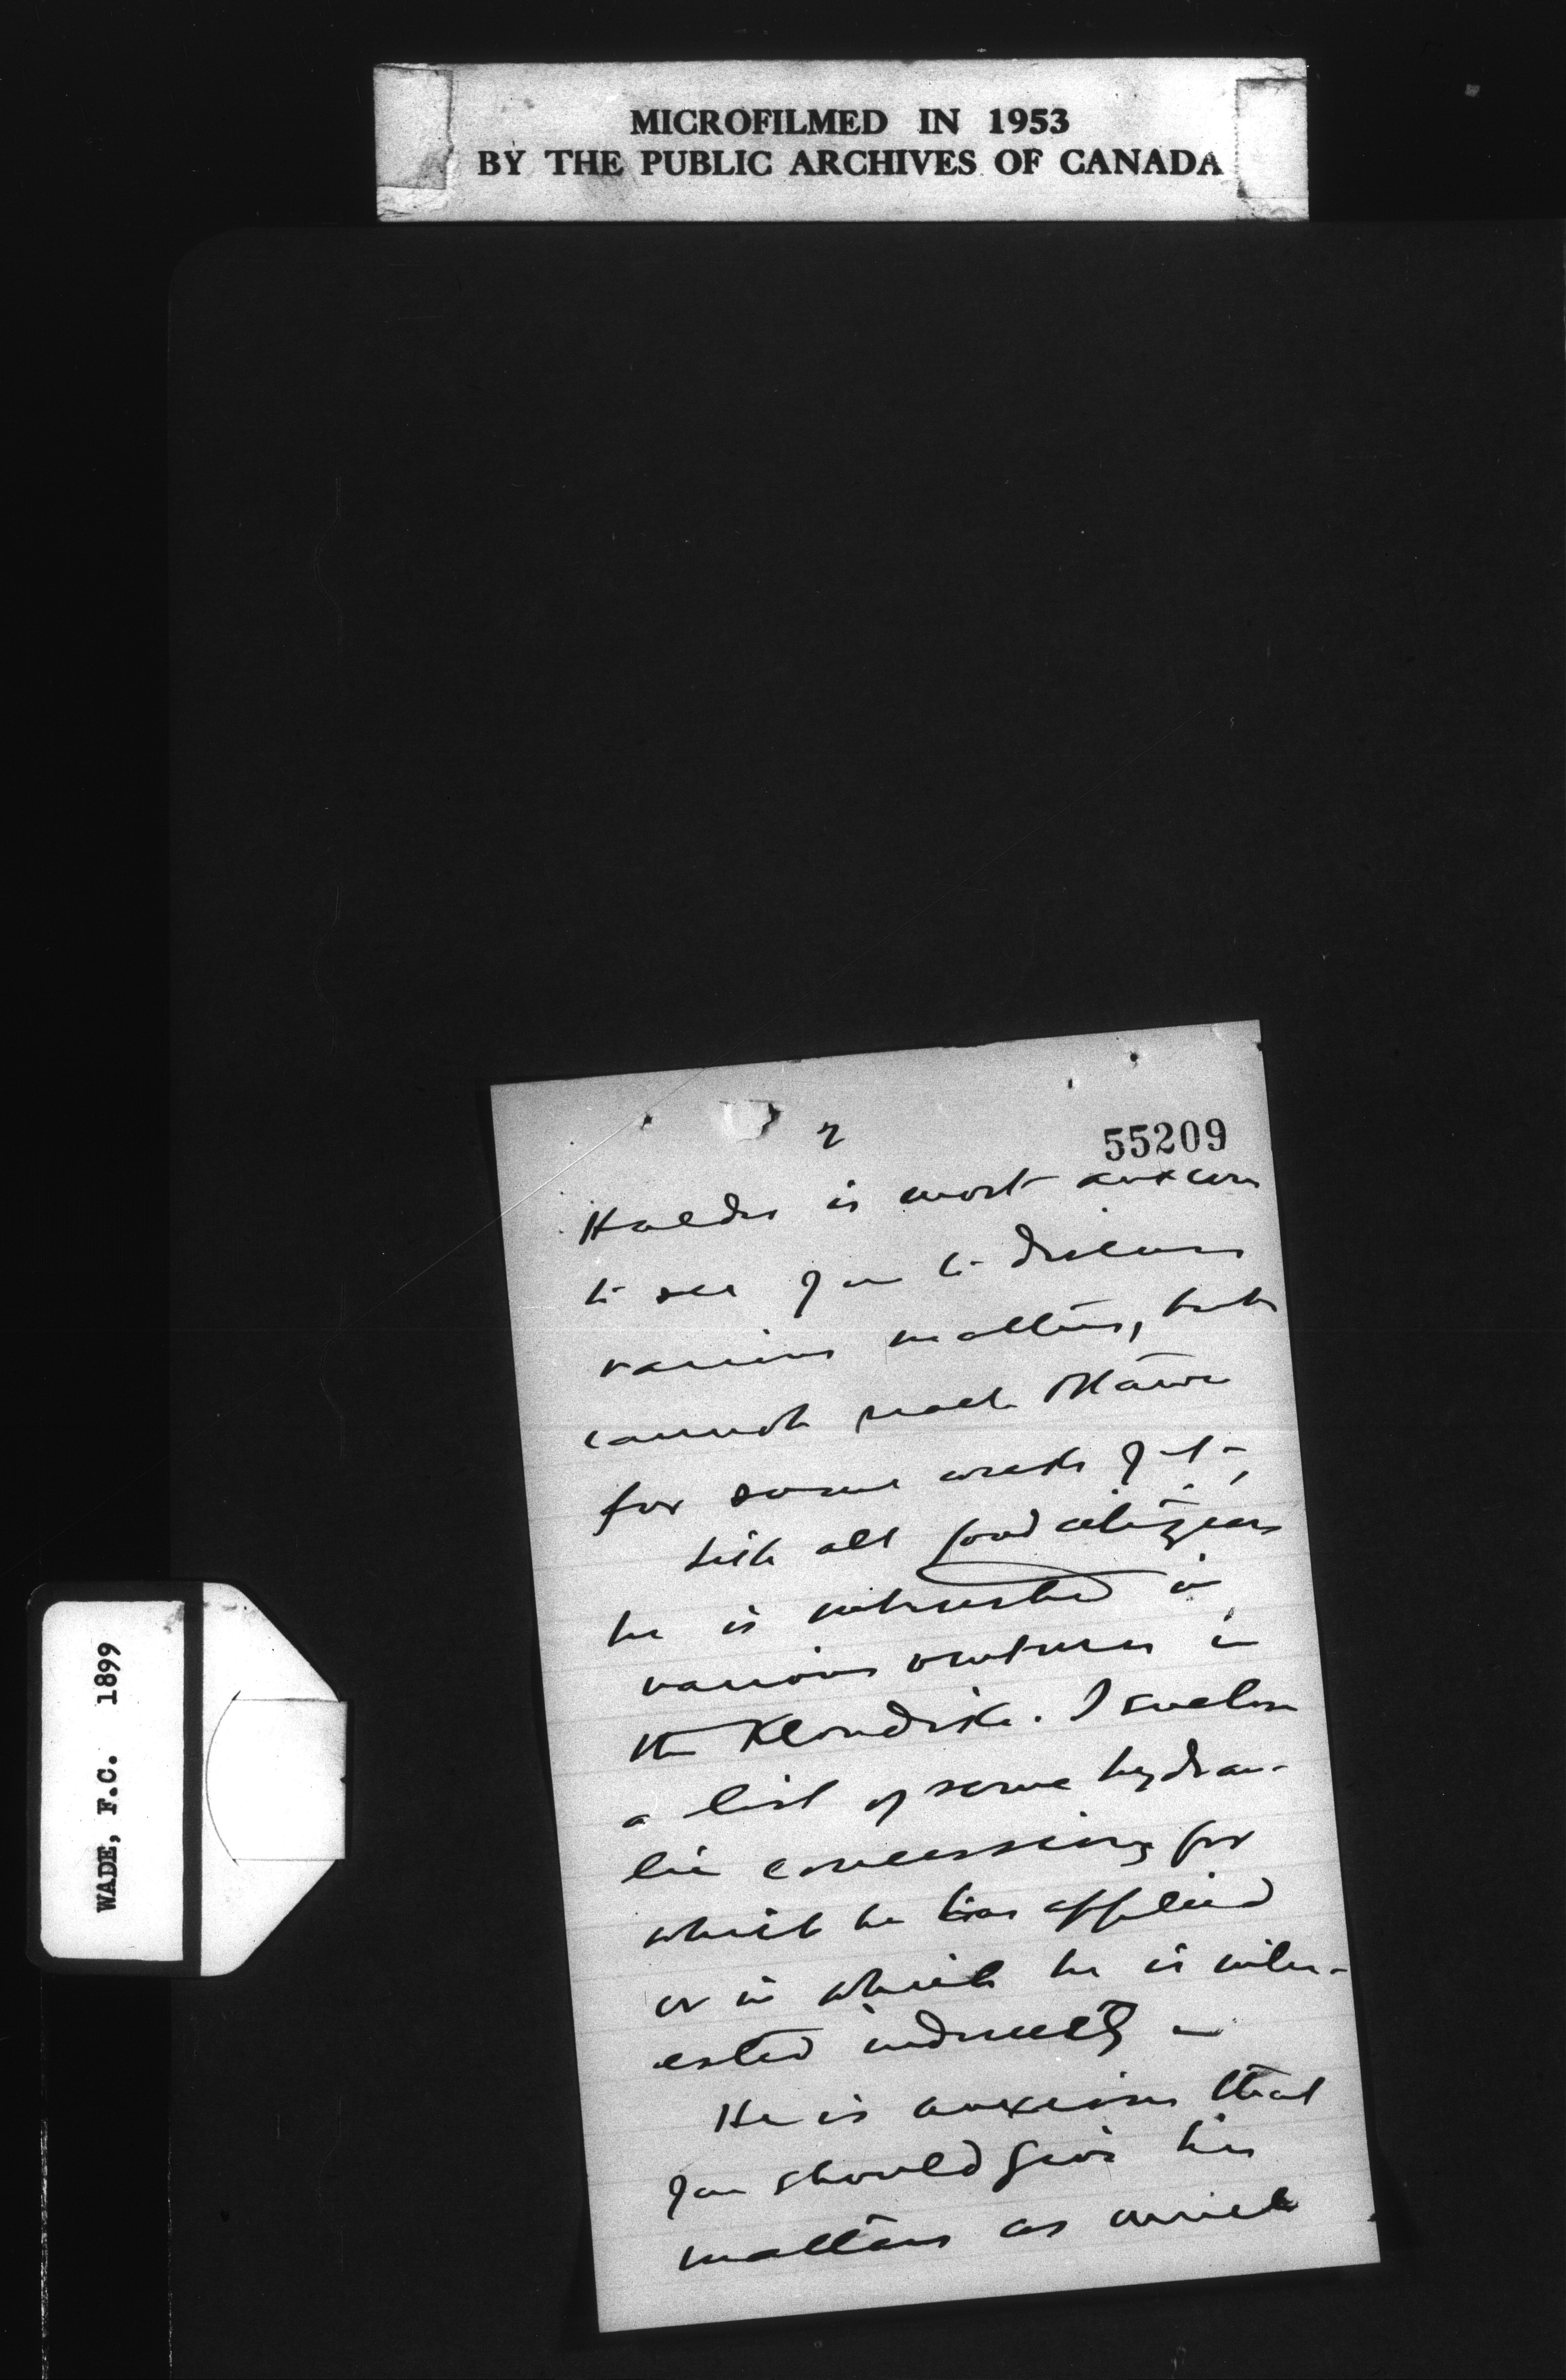 MICROFILMED IN 1953
BY THE PUBLIC ARCHIVES OF CANADA
WADE, F.C. 1899
2
55209
is most anxious
to see you to discuss
various matters, but
cannot reach Ottawa
for some weeks yet,
Like all good citizens
he is interested in
various ventures in
the Klondike. I enclose
a list of some hydrau-
lic concessions for
which he has applied
or in which he is inter-
ested indirectly –
He is anxious that
you should give his
matters as much